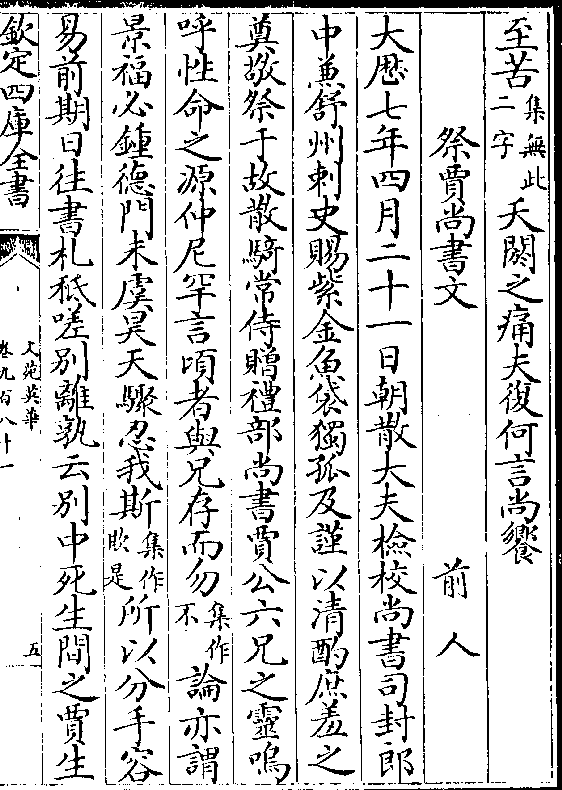 至苦集無此二字夭閼之痛夫復何言尚饗
祭賈尚書文 前人
大厯七年四月二十一日朝散大夫檢校尚書司封郎
中兼舒州刺史賜紫金魚袋獨孤及謹以清酌庶羞之
奠敬祭于故散騎常侍贈禮部尚書賈公六兄之靈嗚
呼性命之源仲尼罕言頃者與兄存而勿集作不論亦謂
景福必鍾德門未虞昊天驟忍我斯集作欺是所以分手容
易前期日往書札秪嗟別離孰云別中死生間之賈生
欽定四庫全書
文苑英華
卷九百八十一
五